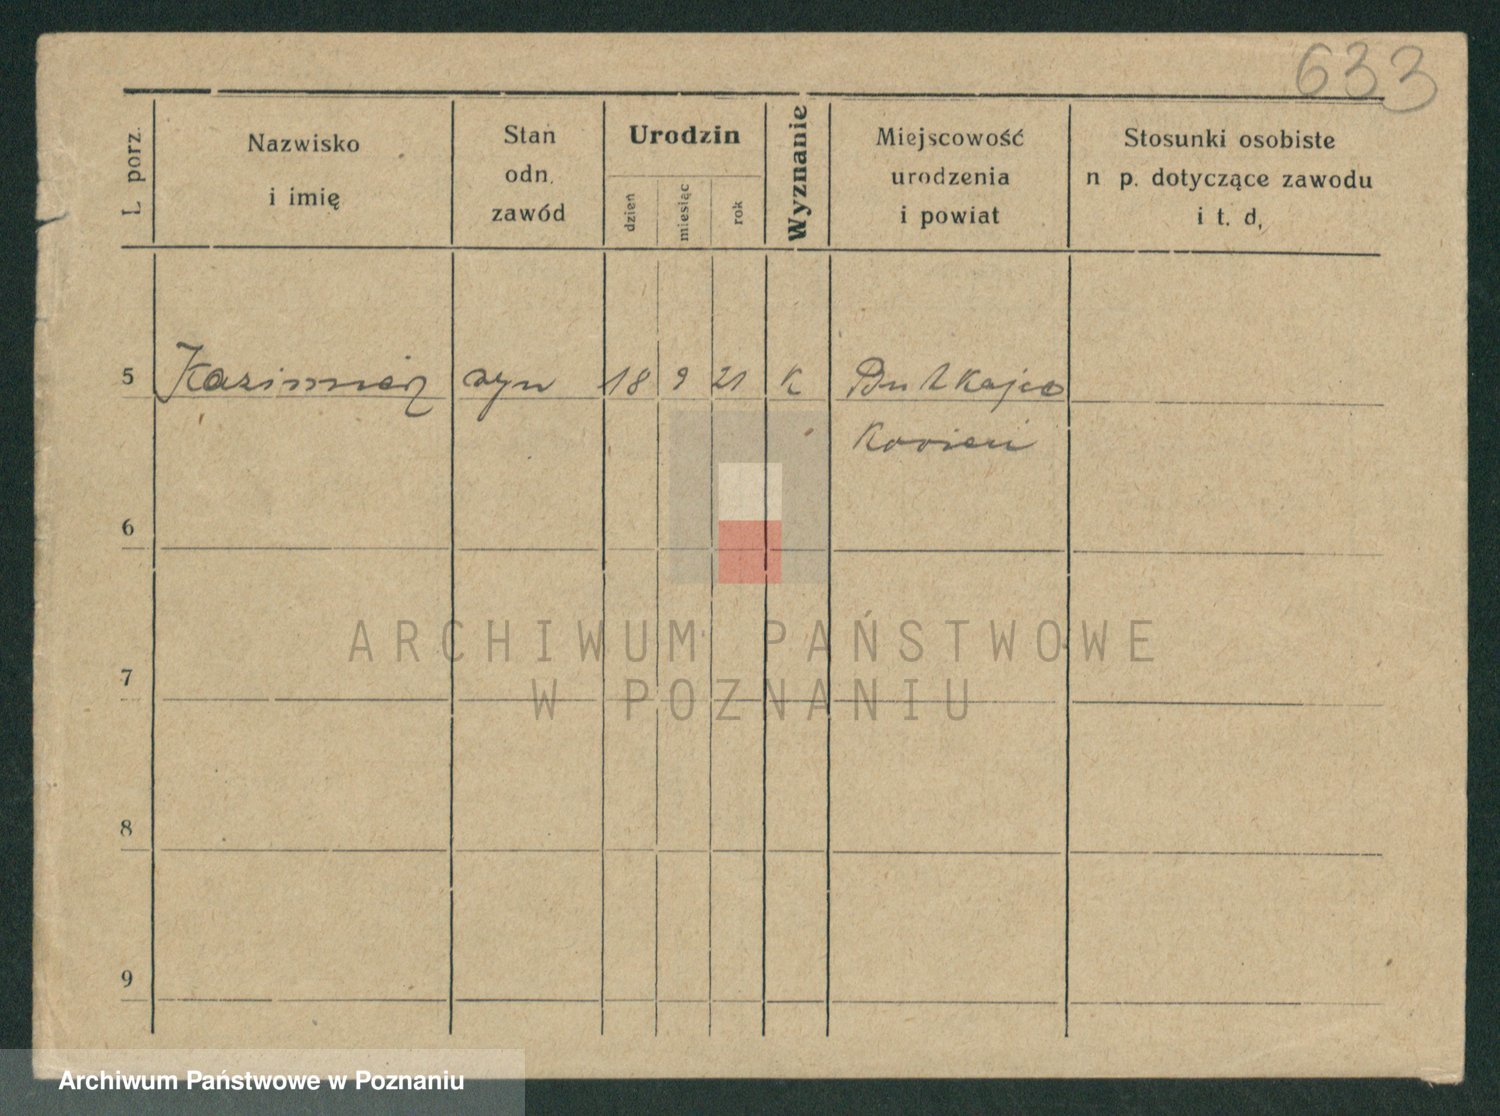 633
L porz.
Nazwisko
i imię
Stan
odn.
zawód
Urodzin
dzień
miesiąc
rok
Wyznanie
Miejscowość
urodzenia
i powiat
Stosunki osobiste
n p. dotyczące zawodu
i t. d.
5 Kazimierz syn 18 9 21 K
6
7
8
9
ARCHIWUM PAŃSTWOWE
W POZNANIU
Archiwum Państwowe w Poznaniu